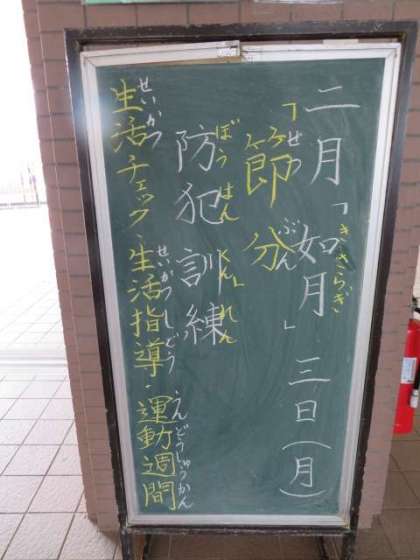 きさらぎ
二月「如月」三日(月)
せつぶん
「節分」
ぼうはんくんれん
防犯訓練
せいかつ せいかつしどう えんどうしゅうかん
生活チェック・生活指導・運動週間